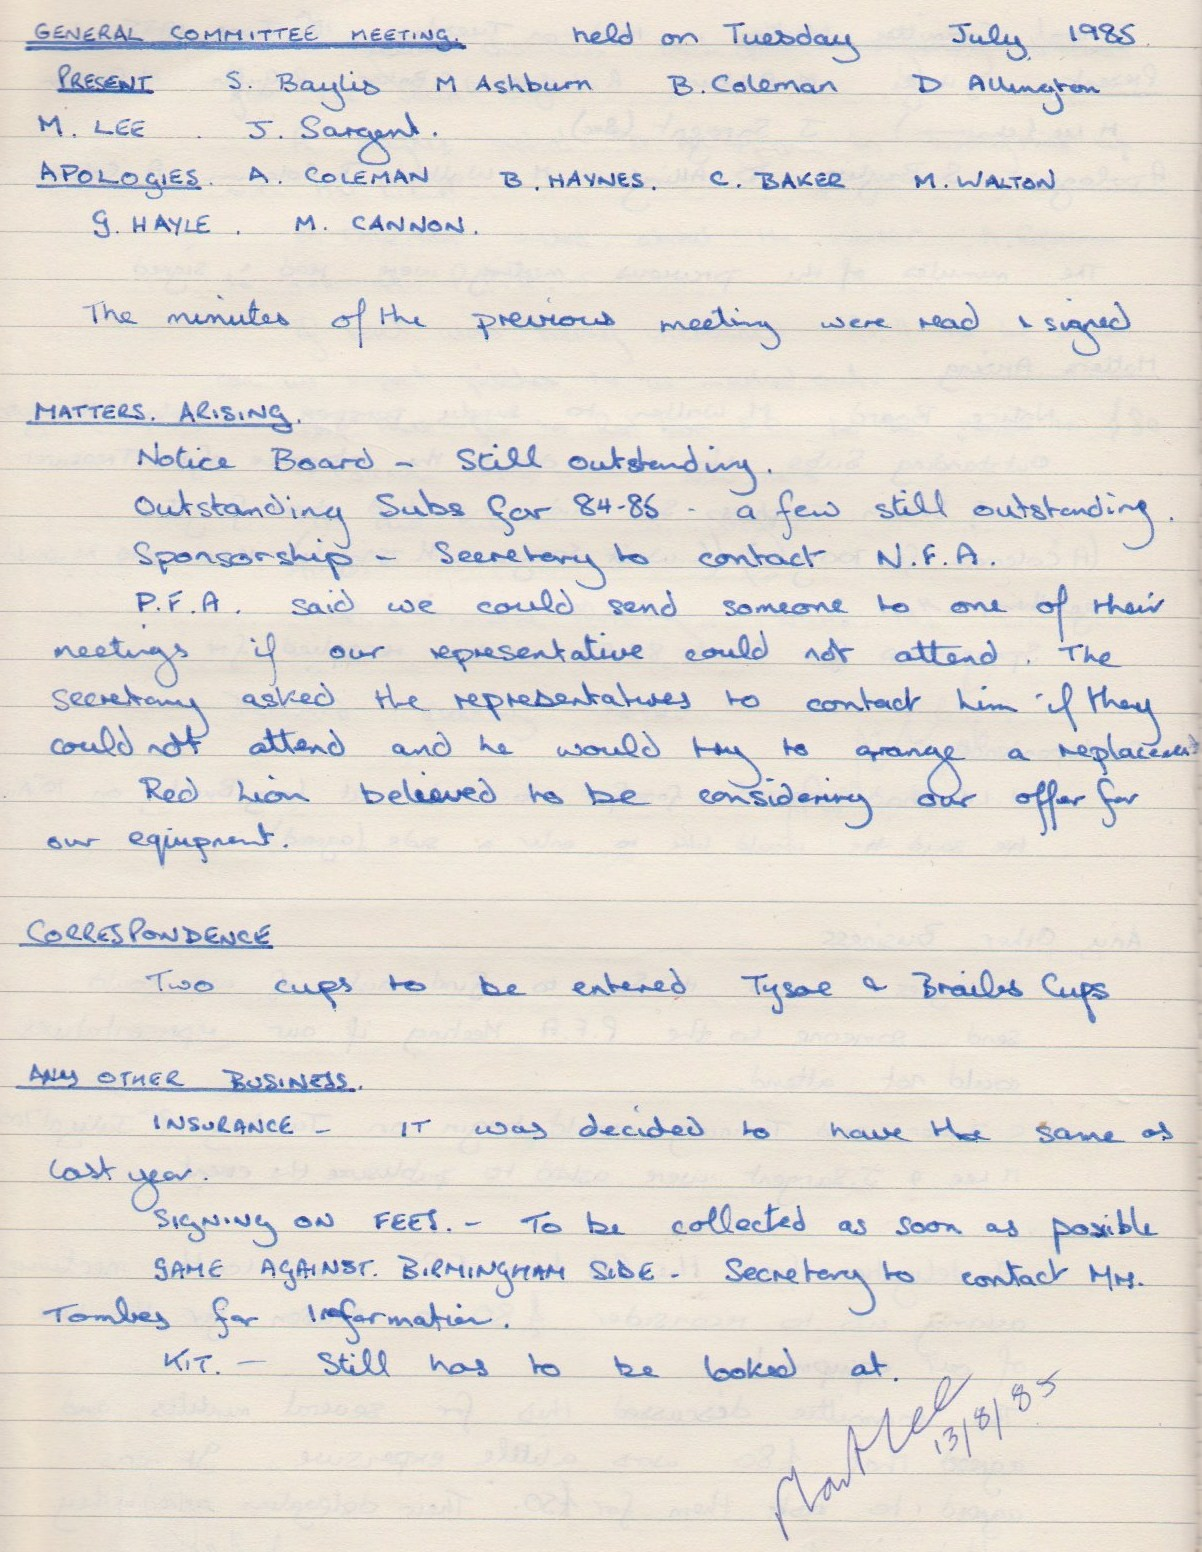 GENERAL COMMITTEE MEETING. held on Tuesday July 1985.
PRESENT S. Baylis M Ashburn B. Coleman D Allington
M. LEE . J. Sargent.
APOLOGIES. A. COLEMAN B. HAYNES. C. BAKER M. WALTON
G. HAYLE . M. CANNON.
The minutes of the previous meeting were read & signed
MATTERS. ARISING.
Notice Board - Still outstanding.
Outstanding Subs for 84-85 - a few still outstanding.
Sponsorship - Secretary to contact N.F.A.
P.F.A. said we could send someone to one of their
meetings if our representative could not attend. The
secretary asked the representatives to contact him if they
could not attend and he would try to arange a replacement
Red Lion believed to be considering our offer for
our equipment.
CORRESPONDENCE
Two cups to be entered Tysoe & Brailes Cups
ANY OTHER BUSINESS.
INSURANCE - IT was decided to have the same as
last year.
SIGNING ON FEES. - To be collected as soon as possible
GAME AGAINST. BIRMINGHAM SIDE - Secretary to contact Mr.
Tombes for Information.
KIT. - Still has to be looked at.
13/8/85